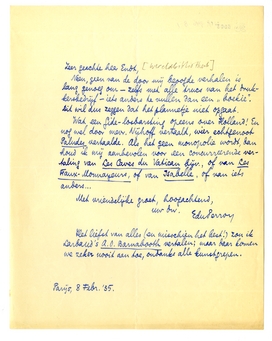 Zeer geachte heer Eudt,
Neen, geen van de door mij beloofde verhalen is
lang genoeg om — zelfs met alle truc's van het druk-
kersbedrijf — iets anders te vullen dan een "boekje".
Dit wil dus zeggen dat het plannetje niet opgaat.
Wat een Gide-losbarsting opeens over Holland! En
nog wel door mevr. Nijhoff vertaald, wier echtgenoot
Paludes vertaalde. Als het geen monopolie wordt, kan
ik mij aanbevelen voor een concurreerende ver-
taling van Les Caves du Vatican bijv., of van Les
Faux-Monnayeurs, of van Isabelle, of van iets
anders...
Met vriendelijke groet, hoogachtend,
uw dw. EduPerron
Het liefst van alles (en misschien het best!) zou ik
Larbaud's A.O. Barnabooth vertalen; maar daar komen
we zeker nooit aan toe, ondanks alle kunstgrepen.
Parijs, 8 Febr. '35.